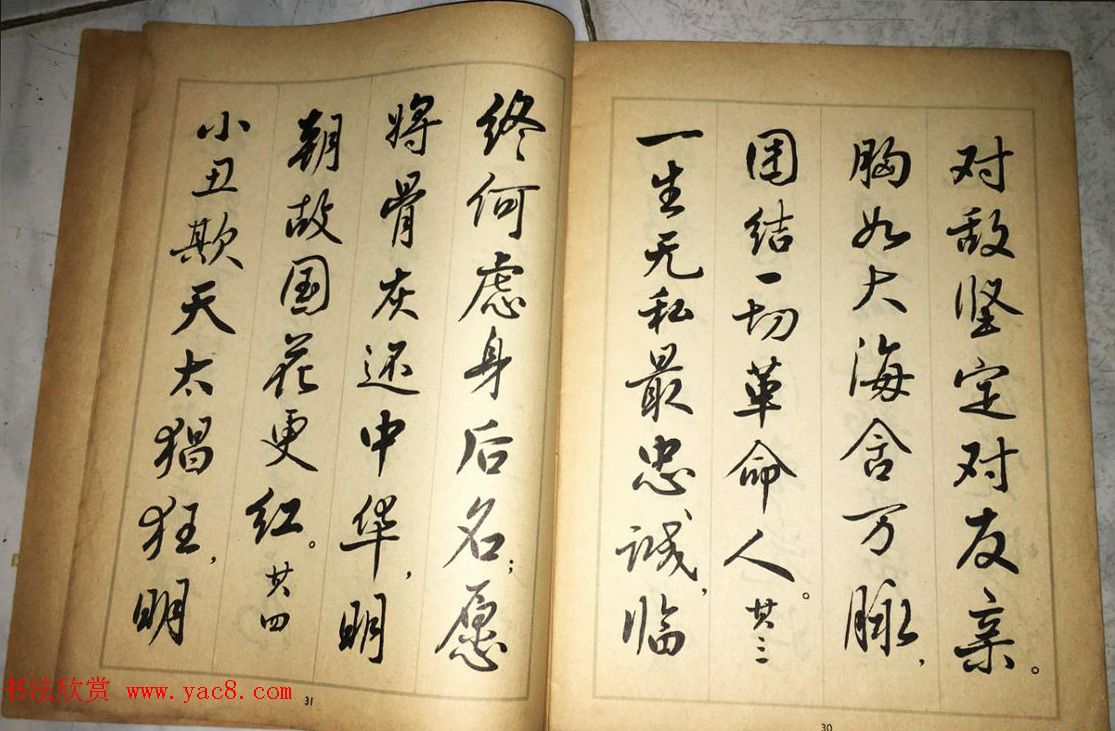 对敌坚定对友亲。
胸如大海舍万脉，
团结一切革命人。其三
一生无私最忠诚，临
30
终何虑身后名；愿
将骨灰还中华，明
朝故国花更红。其四
小丑欺天太猖狂，明
31
书法欣赏 www.yac8.com